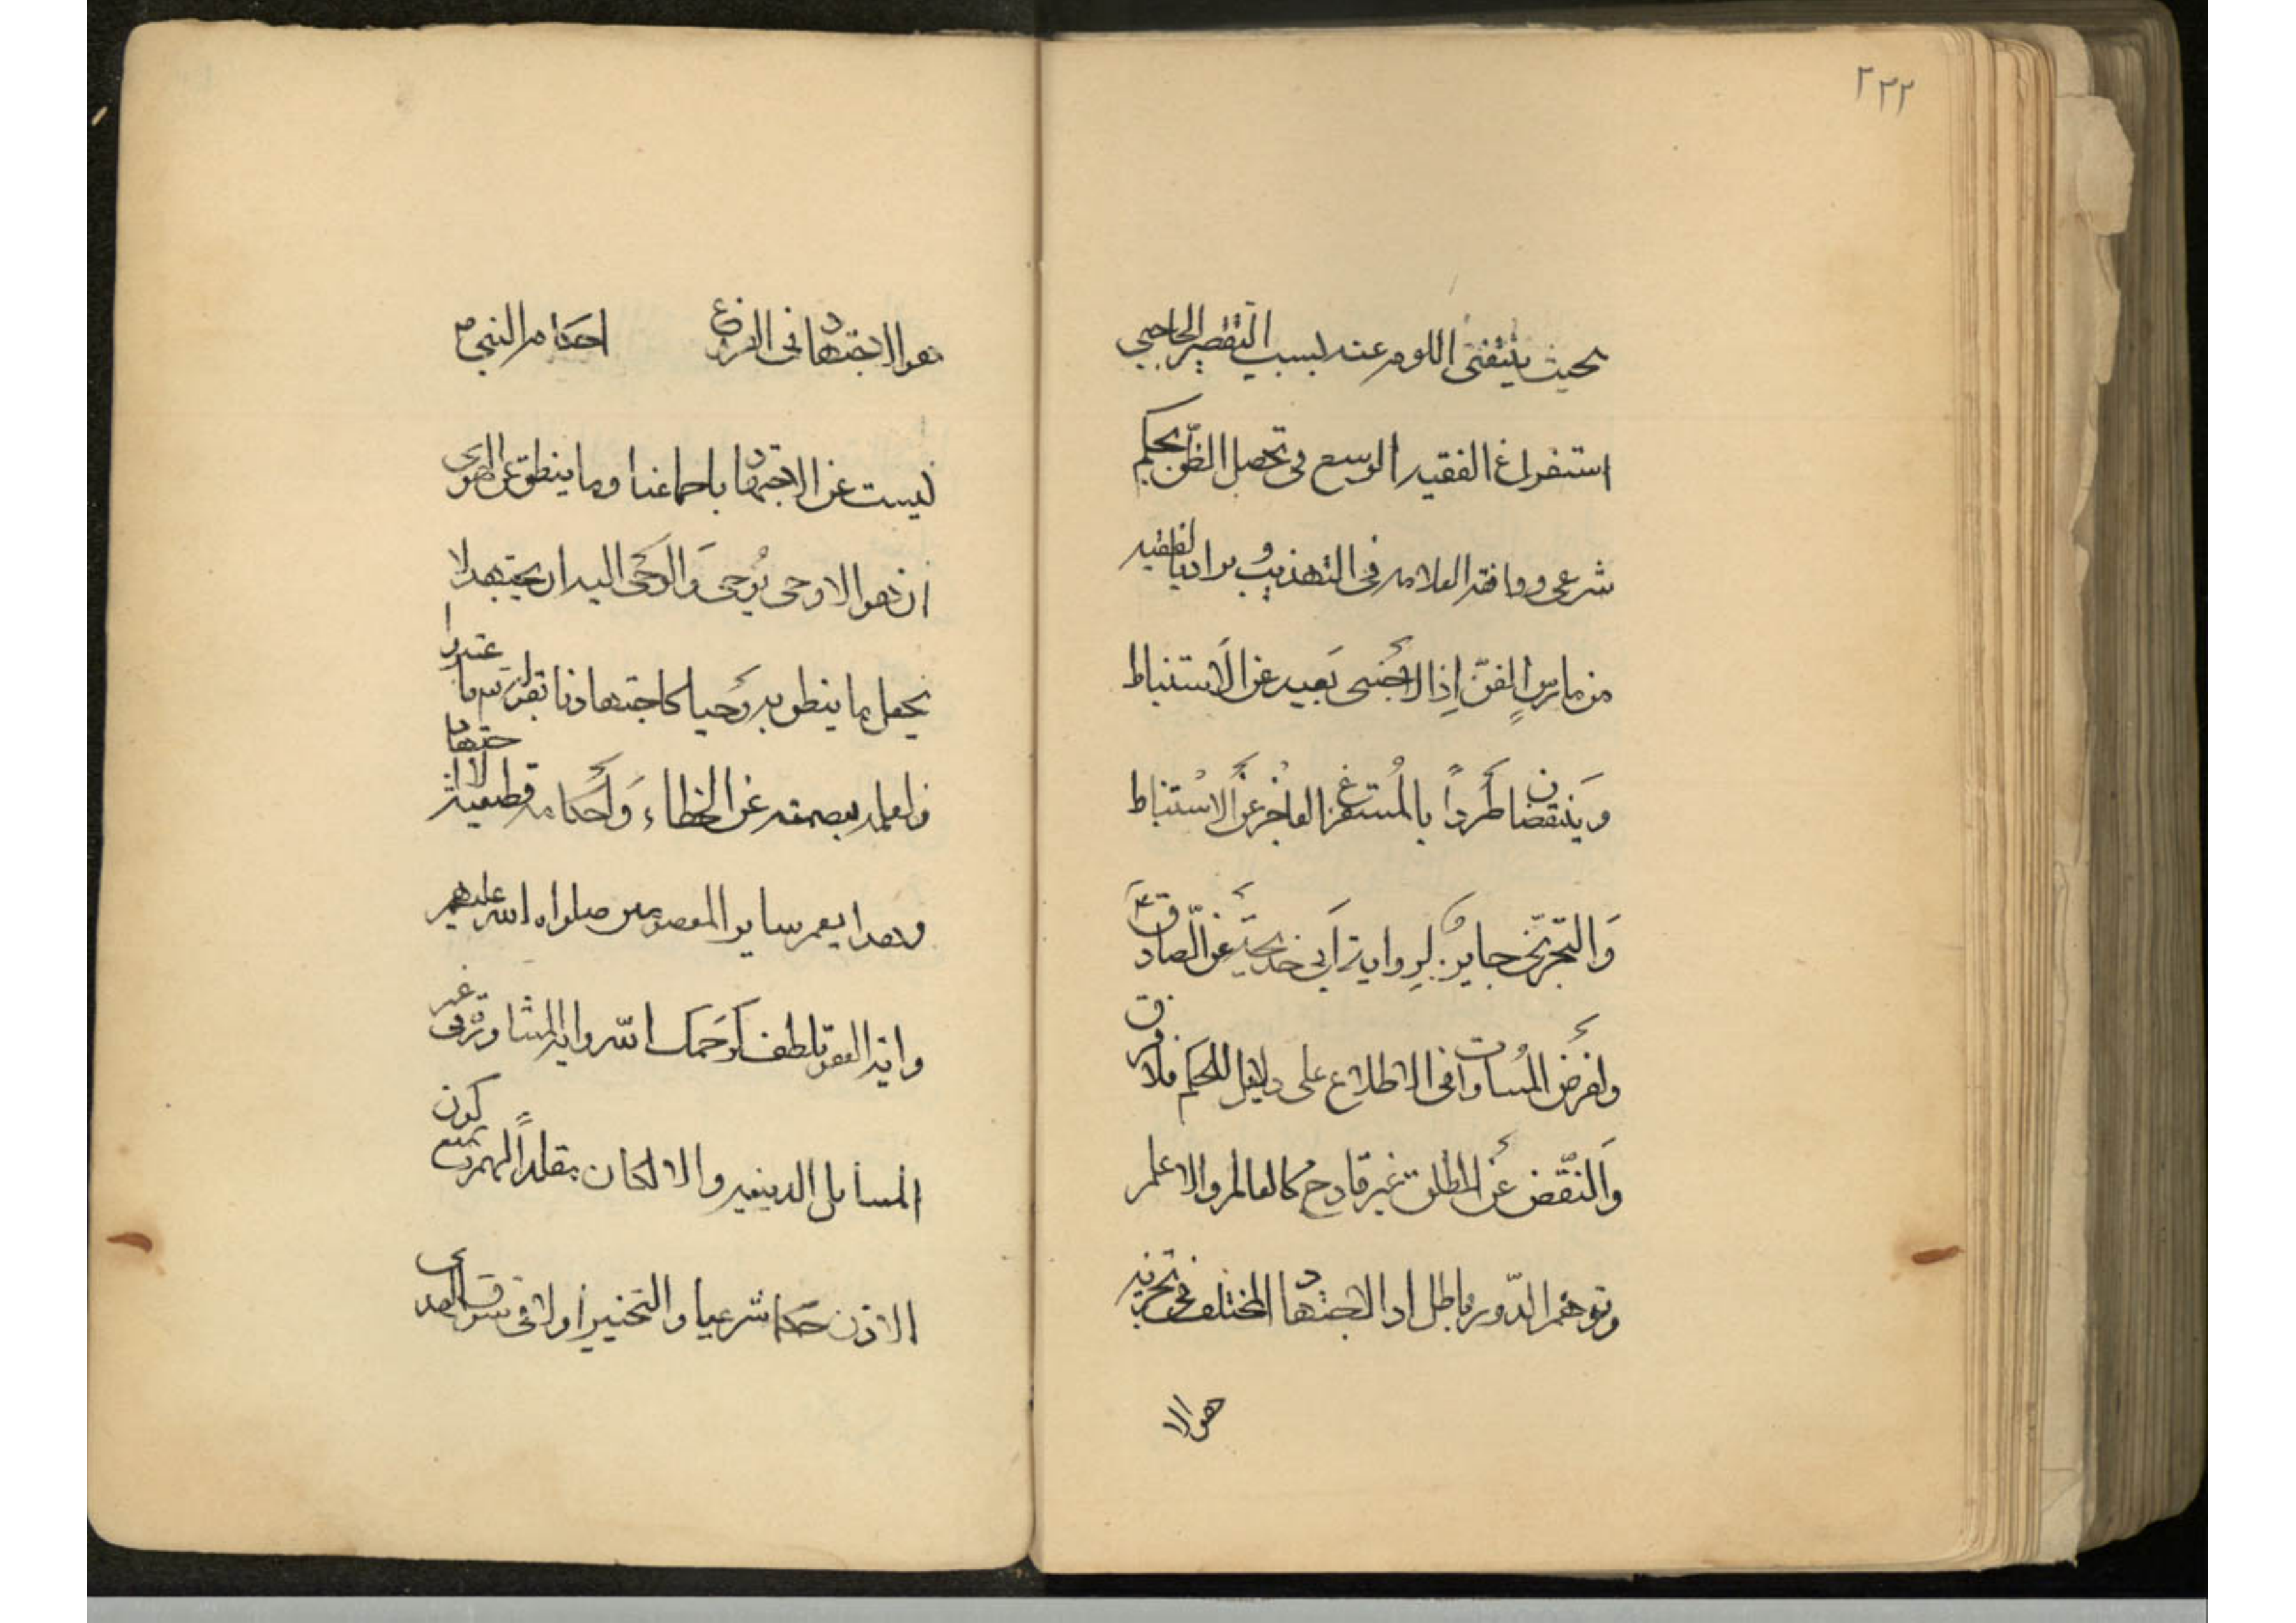 ٢٢٢
بحيث ينتفى اللوم عنه بسبب التقصير الحاجبي
استفراغ الفقيه الوسع فى تحصيل الظن بحكم
شرعى ووافقه العلامه فى التهذيب ويراد بالفقيه
من مارس الفنّ إذ الاجنبى بعيد عن الاستنباط
وينتقضان طرداً بالمستفرغ العاجز عن الاستنباط
والتجزى جايز لرواية أبى خديجة عن الصادق ع
ولفرض المساوات فى الاطلاع على دلايل الحكم فلا فرق
والنّقض عن المطلق غير قادح كالعالم والاعلم
وتوهم الدّور باطل اذ الاجتهاد المختلف فى تجزيه
هو الا
هو الاجتهاد فى الفروع احكام النبى ص
ليست عن الاجتهاد باجماعنا وما ينطق عن الهوى
ان هو الا وحى يوحى والوحى اليه ان يجتهد لا
يجعل ما ينطق به وحيا كاجتهادنا
ولعلمه بعصمته عن الخطاء وأحكامه قطعية لا اجتهادية
وهذا يعم ساير المعصومين صلواه الله عليهم
واية العفو تلطف كرحمك الله واية المشاورة فى غير
المسايل الدينيه والا لكان مقلداً لهم يمنع كون
الاذن حكما شرعيا والتخيير اولا فى سوق الهدى